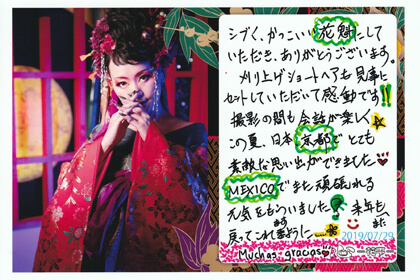 シブく、かっこいい花魁にして
いただき、ありがとうございます。
刈り上げショートヘアも見事に
セットしていただいて感動です!!
撮影の間も会話が楽しく
この夏、日本京都でとても
素敵な思い出ができました
MEXICOでまた頑張れる
元気をもらいました! 来年も、また
戻ってこれますように
2019/07/29
Muchas gracias